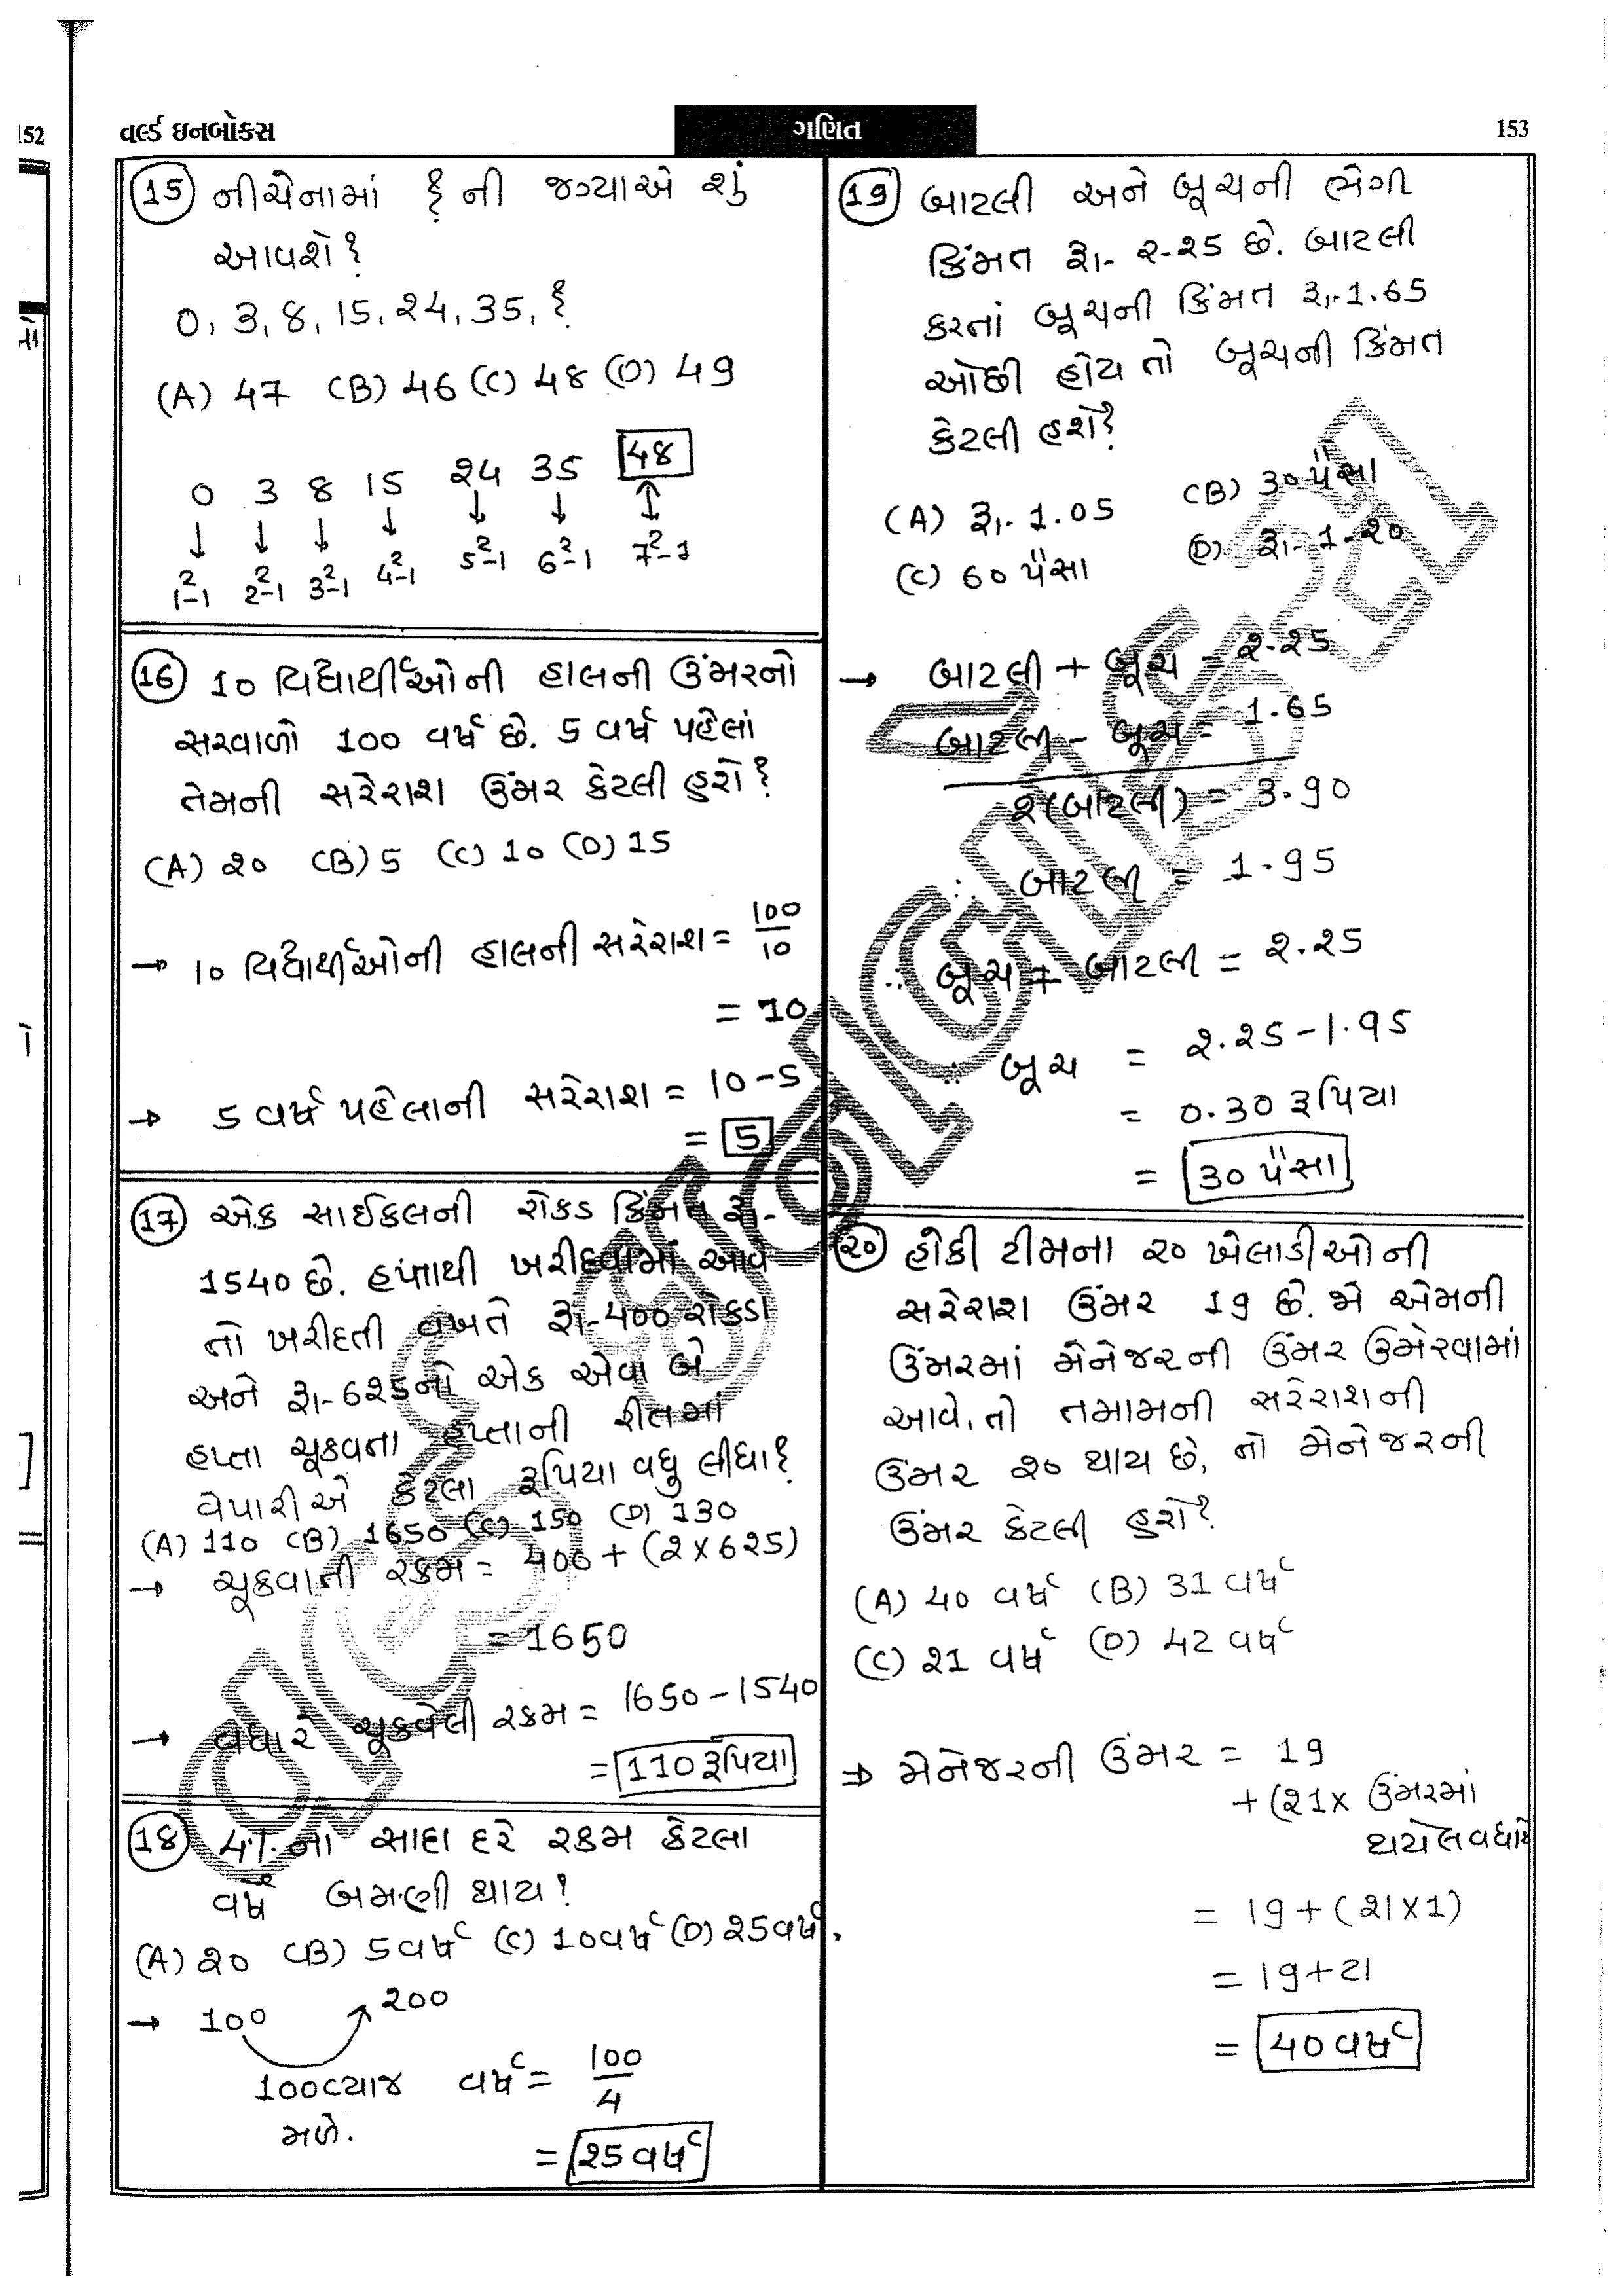 152
વર્લ્ડ ઇનબોક્સ
ગણિત
153
15 નીચેનામાં ? ની જગ્યાએ શું
આવશે?
0, 3, 8, 15, 24, 35, ?
(A) 47 (B) 46 (C) 48 (D) 49
0 3 8 15 24 35 48
1²-1 2²-1 3²-1 4²-1 5²-1 6²-1 7²-1
16 10 વિદ્યાર્થીઓની હાલની ઉંમરનો
સરવાળો 100 વર્ષ છે. 5 વર્ષ પહેલાં
તેમની સરેરાશ ઉંમર કેટલી હશે?
(A) 20 (B) 5 (C) 10 (D) 15
→ 10 વિદ્યાર્થીઓની હાલની સરેરાશ = 100/10
= 10
→ 5 વર્ષ પહેલાની સરેરાશ = 10-5
= 5
17 એક સાઈકલની રોકડ કિંમત રૂા-
1540 છે. હપ્તાથી ખરીદવામાં આવે
તો ખરીદતી વખતે રૂા-400 રોકડા
અને રૂા-625નો એક એવા બે
હપ્તા ચૂકવતા હપ્તાની રીતમાં
વેપારીએ કેટલા રૂપિયા વધુ લીધા?
(A) 110 (B) 1650 (C) 150 (D) 130
→ ચૂકવાની રકમ = 400 + (2×625)
= 1650
→ વધારે ચૂકવેલી રકમ = 1650-1540
= 110 રૂપિયા
18 4% ના સાદા દરે રકમ કેટલા
વર્ષે બમણી થાય?
(A) 20 (B) 5 વર્ષ (C) 10 વર્ષ (D) 25 વર્ષ.
→ 100 200
100 વ્યાજ વર્ષ = 100/4
મળે.
= 25 વર્ષ
19 બાટલી અને બૂચની ભેગી
કિંમત રૂા- 2-25 છે. બાટલી
કરતાં બૂચની કિંમત રૂા-1.65
ઓછી હોય તો બૂચની કિંમત
કેટલી હશે?
(A) રૂા- 1.05 (B) 30 પૈસા
(C) 60 પૈસા (D) રૂા- 1-20
→ બાટલી + બૂચ = 2.25
બાટલી - બૂચ = 1.65
2(બાટલી) = 3.90
∴ બાટલી = 1.95
∴ બૂચ + બાટલી = 2.25
∴ બૂચ = 2.25-1.95
= 0.30 રૂપિયા
= 30 પૈસા
20 હોકી ટીમના 20 ખેલાડીઓની
સરેરાશ ઉંમર 19 છે. જો એમની
ઉંમરમાં મેનેજરની ઉંમર ઉમેરવામાં
આવે, તો તમામની સરેરાશની
ઉંમર 20 થાય છે, તો મેનેજરની
ઉંમર કેટલી હશે?
(A) 40 વર્ષ (B) 31 વર્ષ
(C) 21 વર્ષ (D) 42 વર્ષ
⇒ મેનેજરની ઉંમર = 19
+ (21× ઉંમરમાં
થયેલ વધારો
= 19 + (21×1)
= 19+21
= 40 વર્ષ